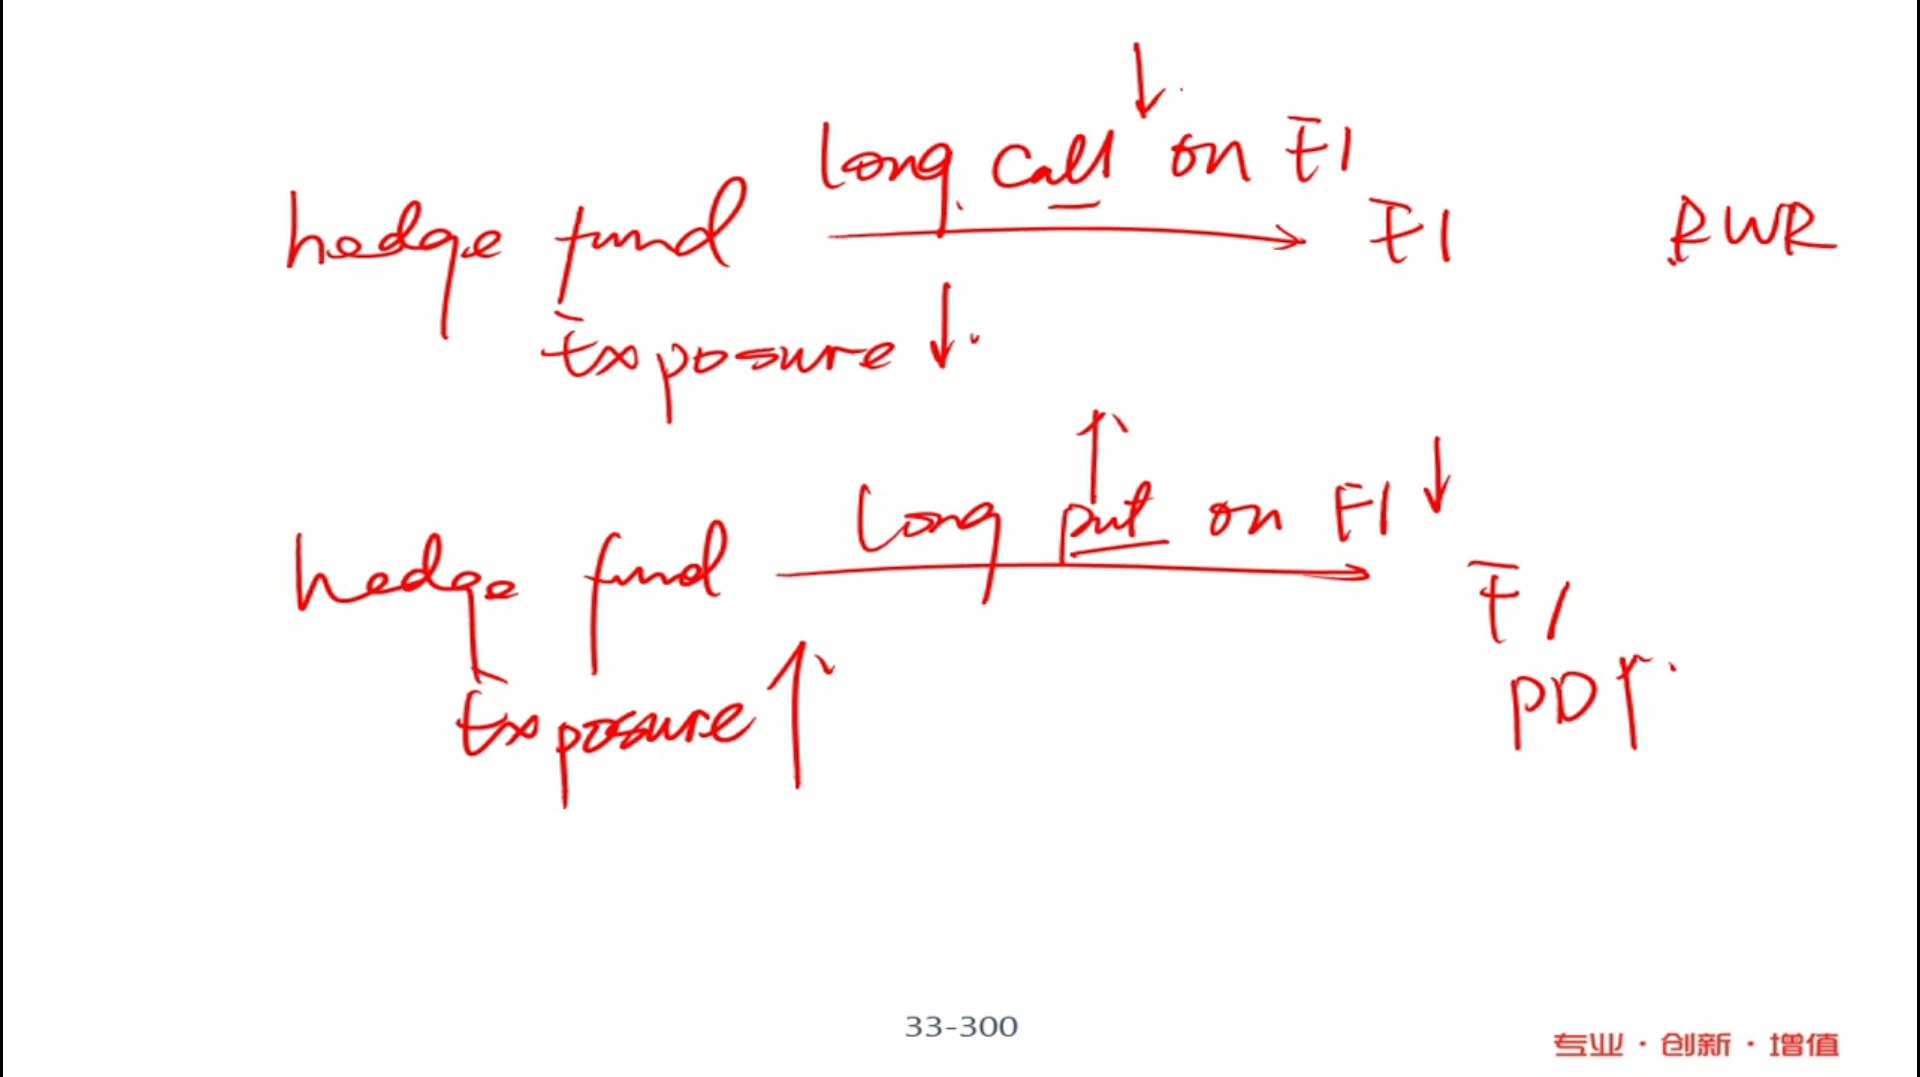 long call ↓ on FI
hedge fund → FI RWR
Exposure ↓
long put ↑ on FI ↓
hedge fund → FI
Exposure ↑ PD ↑
33-300
专业·创新·增值